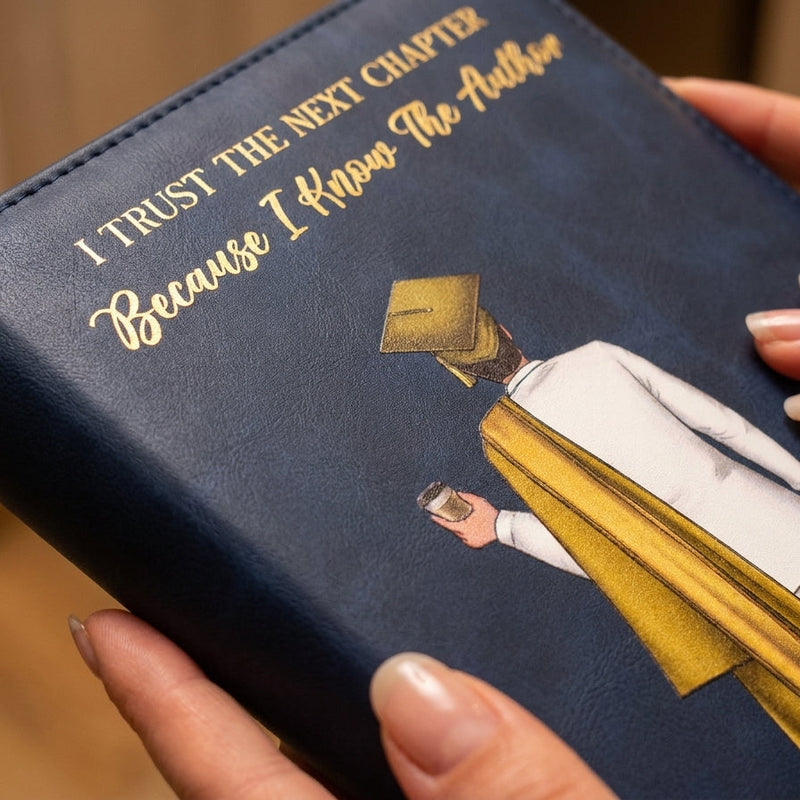 I TRUST THE NEXT CHAPTER
Because I Know The Author